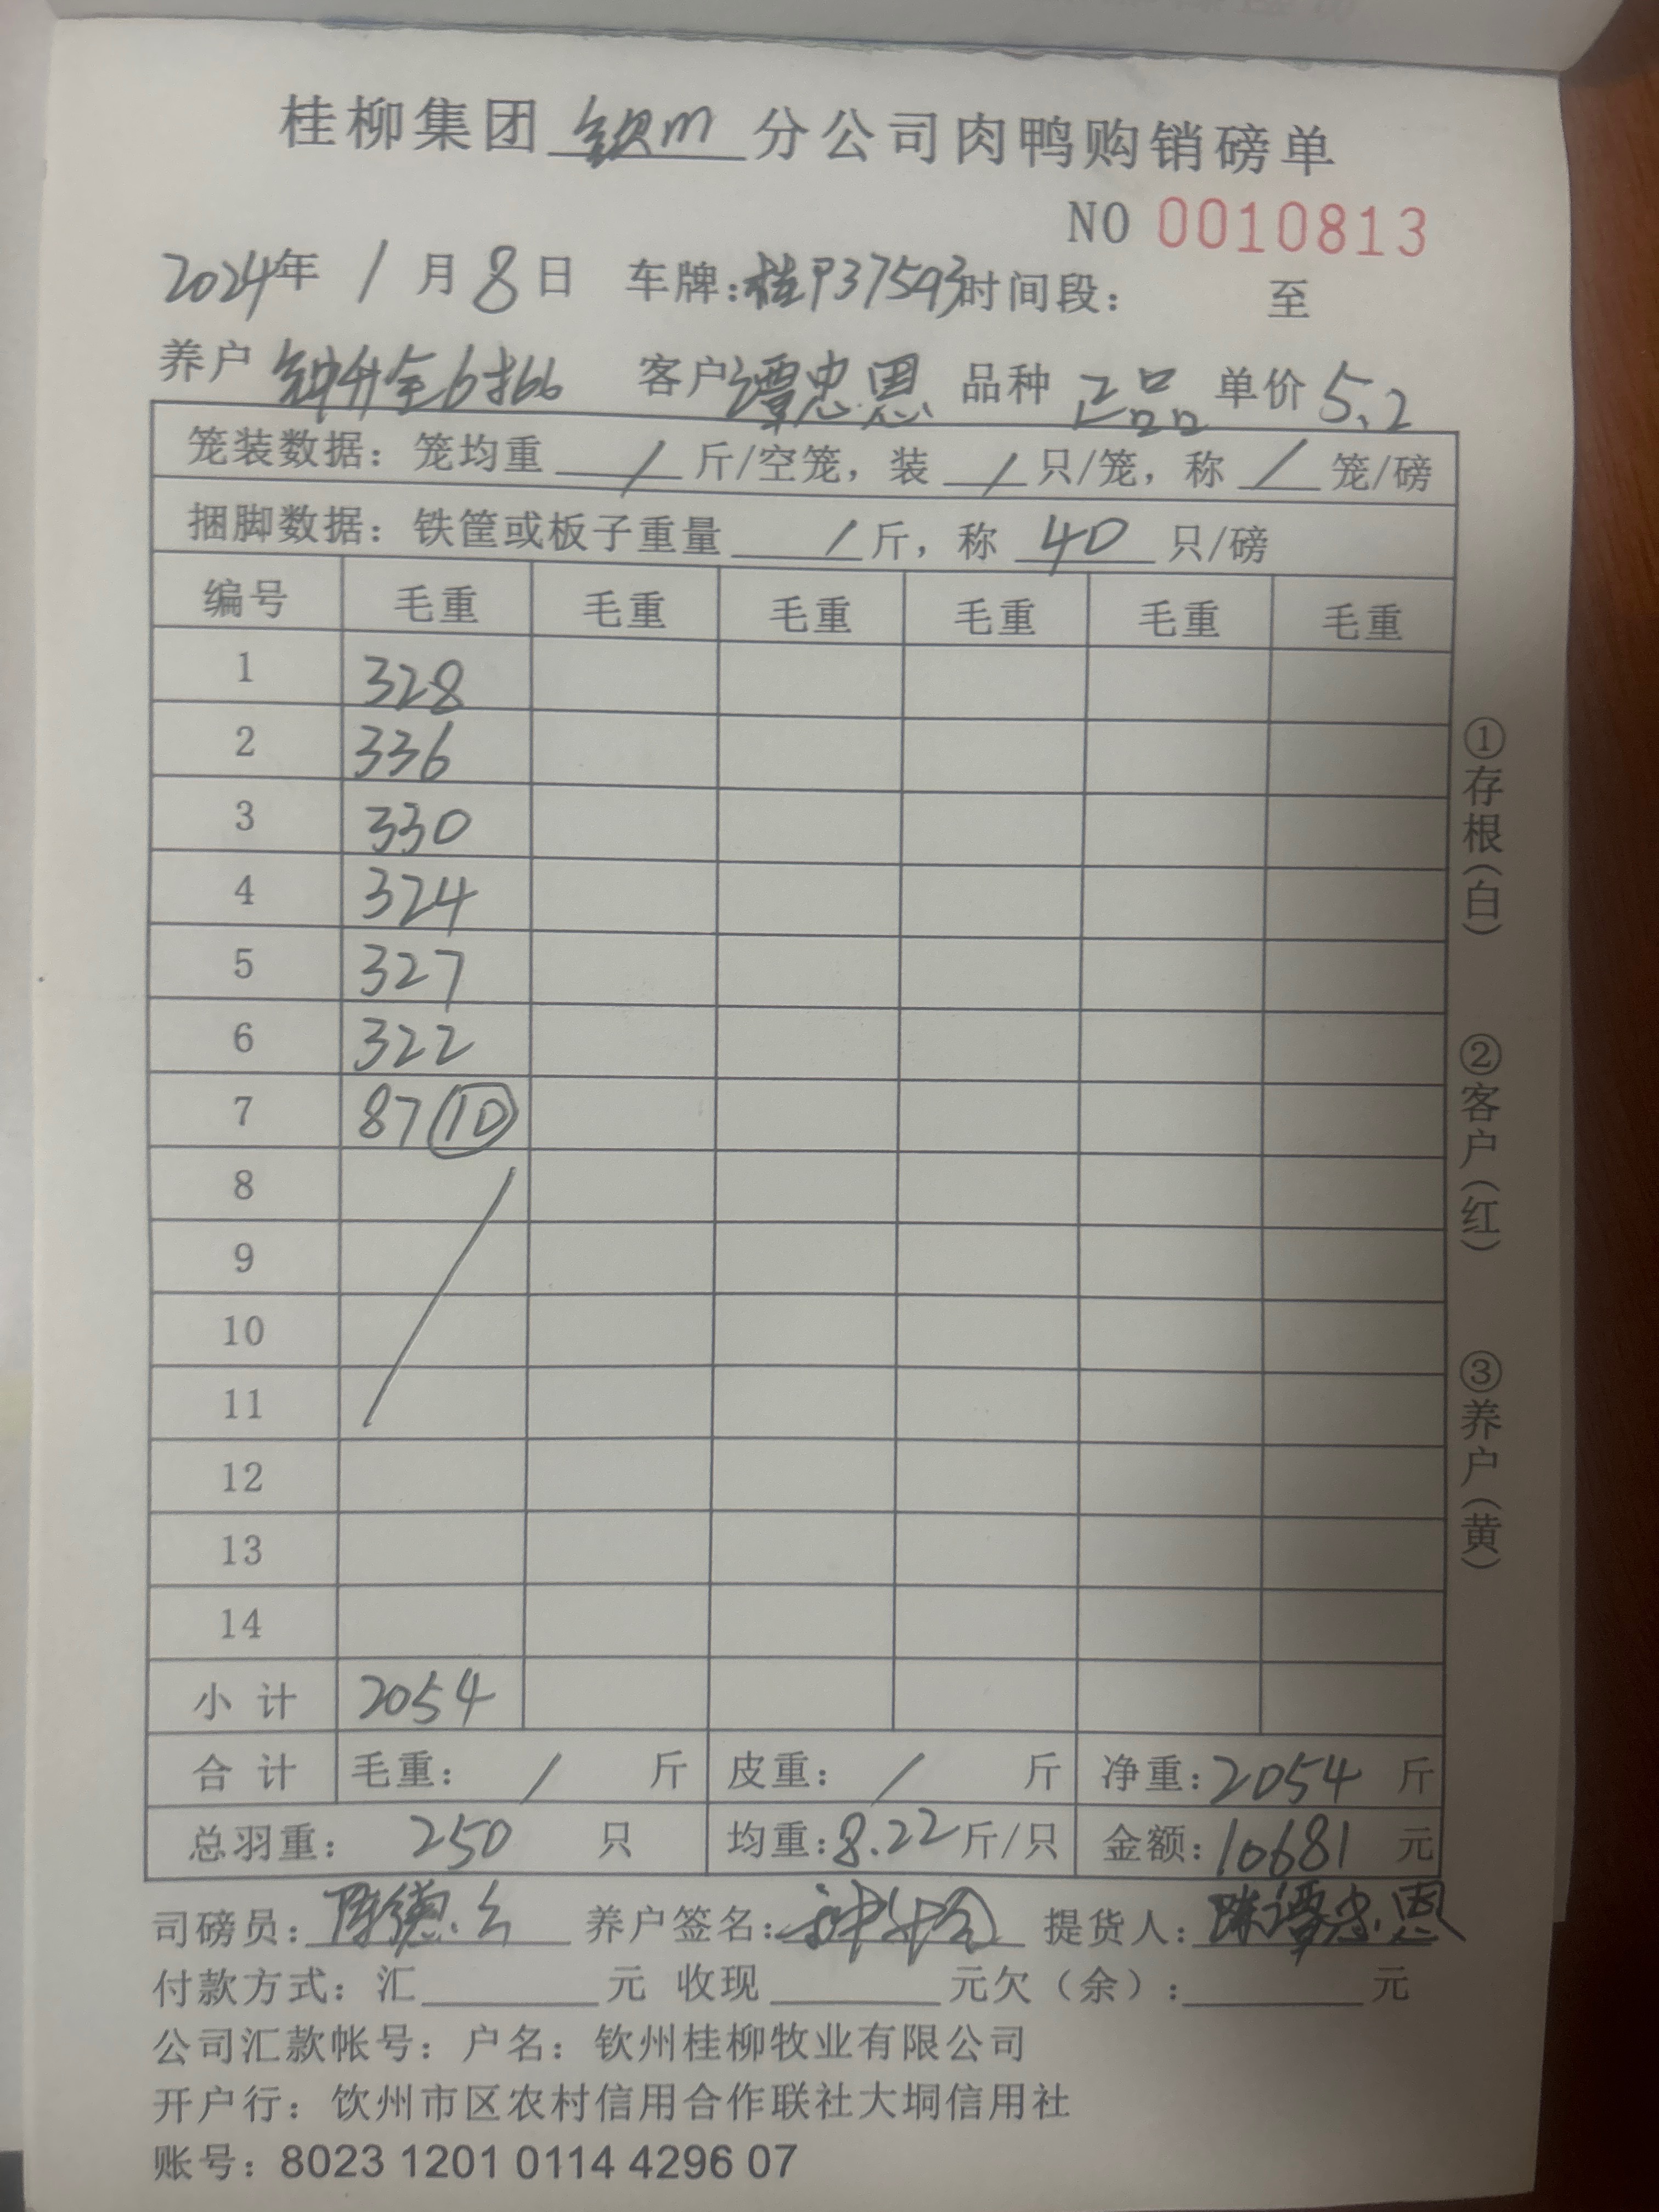 桂柳集团 钦州 分公司肉鸭购销磅单
NO 0010813
2024年 1 月 8 日 车牌:桂P37593 时间段: 至
养户 钟升全6批 客户 谭忠恩 品种 正品 单价 5.2
笼装数据: 笼均重 / 斤/空笼, 装 / 只/笼, 称 / 笼/磅
捆脚数据: 铁筐或板子重量 / 斤, 称 40 只/磅
编号 毛重 毛重 毛重 毛重 毛重 毛重
1 328
2 336
3 330
4 324
5 327
6 322
7 87 10
8
9
10
11
12
13
14
小计 2054
合计 毛重: / 斤 皮重: / 斤 净重: 2054 斤
总羽重: 250 只 均重: 8.22 斤/只 金额: 10681 元
司磅员: 养户签名: 提货人: 谭忠恩
付款方式: 汇 元 收现 元欠(余): 元
公司汇款帐号: 户名: 钦州桂柳牧业有限公司
开户行: 钦州市区农村信用合作联社大垌信用社
账号: 8023 1201 0114 4296 07
①存根(白)
②客户(红)
③养户(黄)